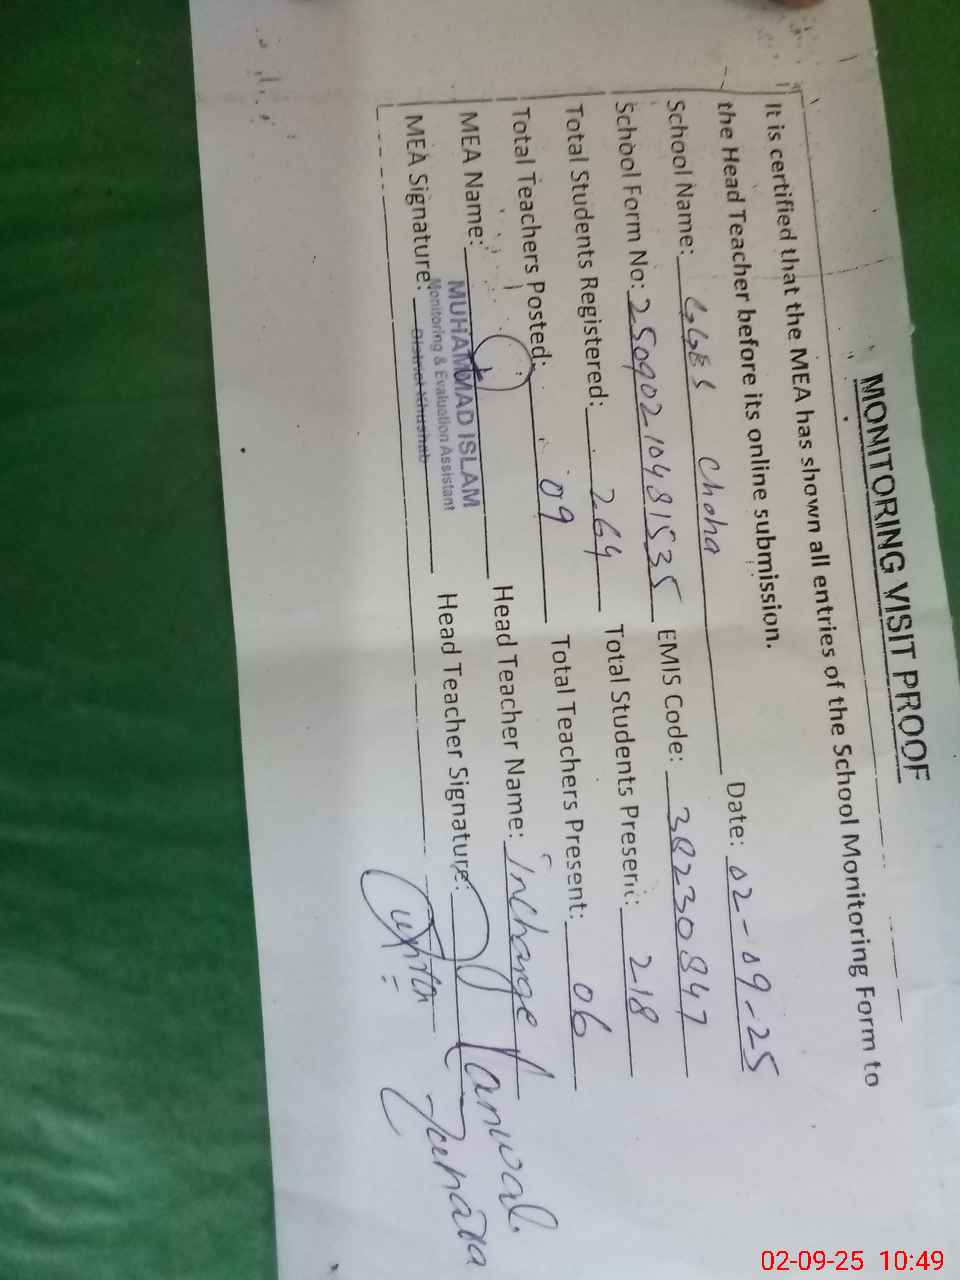 MONITORING VISIT PROOF
It is certified that the MEA has shown all entries of the School Monitoring Form to
the Head Teacher before its online submission.
School Name: GGES Choha Date: 02-09-25
School Form No: 25090210481535 EMIS Code: 38230847
Total Students Registered: 264 Total Students Present: 218
Total Teachers Posted: 09 Total Teachers Present: 06
MEA Name: MUHAMMAD ISLAM Head Teacher Name: incharge
Monitoring & Evaluation Assistant
District Khushab
MEA Signature: Head Teacher Signature:
02-09-25 10:49